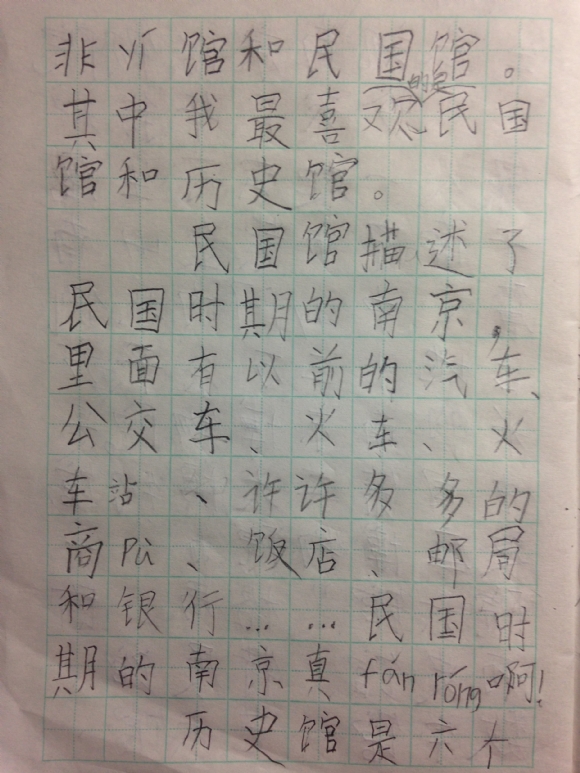 非yí馆和民国馆。
其中我最喜欢的是民国
馆和历史馆。
民国馆描述了
民国时期的南京，
里面有以前的汽车、
公交车、火车、火
车站、许许多多的
商pù、饭店、邮局
和银行……民国时
期的南京真fán róng啊！
历史馆是六个